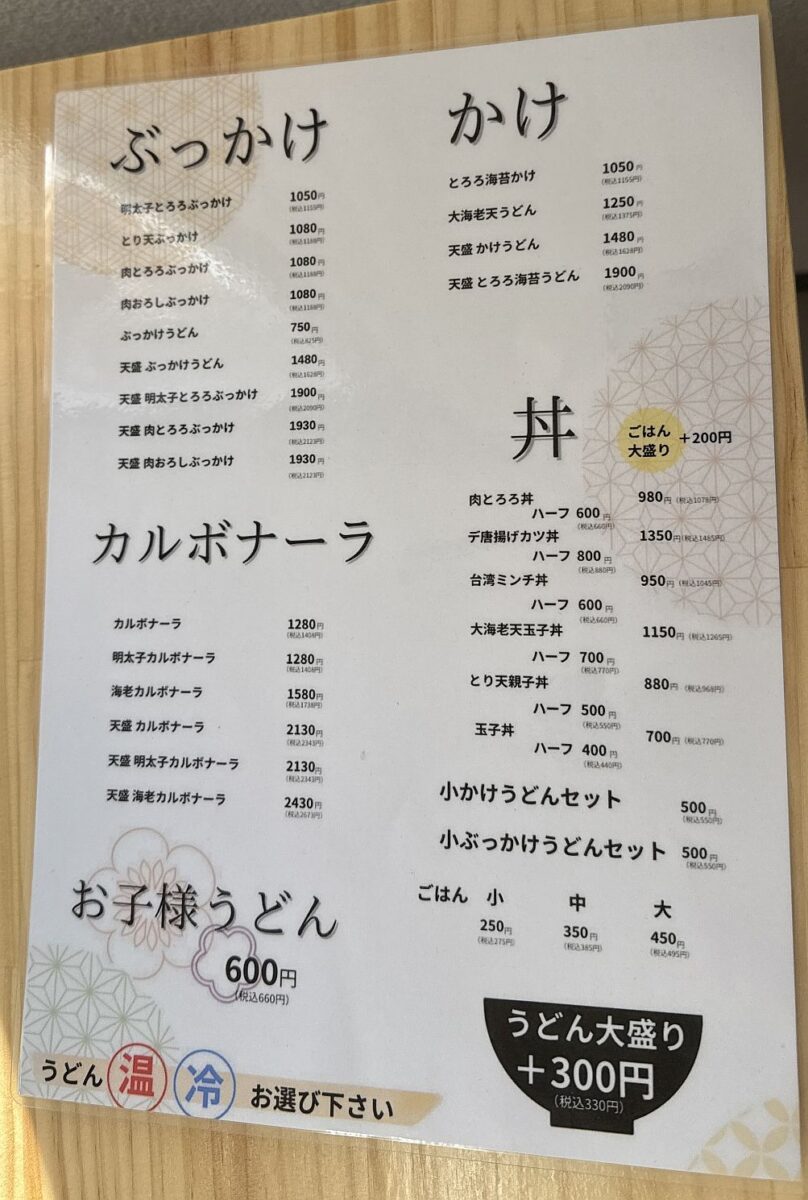 ぶっかけ
明太子とろろぶっかけ 1050円
(税込1155円)
とり天ぶっかけ 1080円
(税込1188円)
肉とろろぶっかけ 1080円
(税込1188円)
肉おろしぶっかけ 1080円
(税込1188円)
ぶっかけうどん 750円
(税込825円)
天盛 ぶっかけうどん 1480円
(税込1628円)
天盛 明太子とろろぶっかけ 1900円
(税込2090円)
天盛 肉とろろぶっかけ 1930円
(税込2123円)
天盛 肉おろしぶっかけ 1930円
(税込2123円)
カルボナーラ
カルボナーラ 1280円
(税込1408円)
明太子カルボナーラ 1280円
(税込1408円)
海老カルボナーラ 1580円
(税込1738円)
天盛 カルボナーラ 2130円
(税込2343円)
天盛 明太子カルボナーラ 2130円
(税込2343円)
天盛 海老カルボナーラ 2430円
(税込2673円)
お子様うどん
600円
(税込660円)
うどん 温 冷 お選び下さい
かけ
とろろ海苔かけ 1050円
(税込1155円)
大海老天うどん 1250円
(税込1375円)
天盛 かけうどん 1480円
(税込1628円)
天盛 とろろ海苔うどん 1900円
(税込2090円)
丼
ごはん
大盛り +200円
肉とろろ丼 980円 (税込1078円)
ハーフ 600円
(税込660円)
デ唐揚げカツ丼 1350円 (税込1485円)
ハーフ 800円
(税込880円)
台湾ミンチ丼 950円 (税込1045円)
ハーフ 600円
(税込660円)
大海老天玉子丼 1150円 (税込1265円)
ハーフ 700円
(税込770円)
とり天親子丼 880円 (税込968円)
ハーフ 500円
(税込550円)
玉子丼 700円 (税込770円)
ハーフ 400円
(税込440円)
小かけうどんセット 500円
(税込550円)
小ぶっかけうどんセット 500円
(税込550円)
ごはん 小 中 大
250円 350円 450円
(税込275円) (税込385円) (税込495円)
うどん大盛り
+300円
(税込330円)